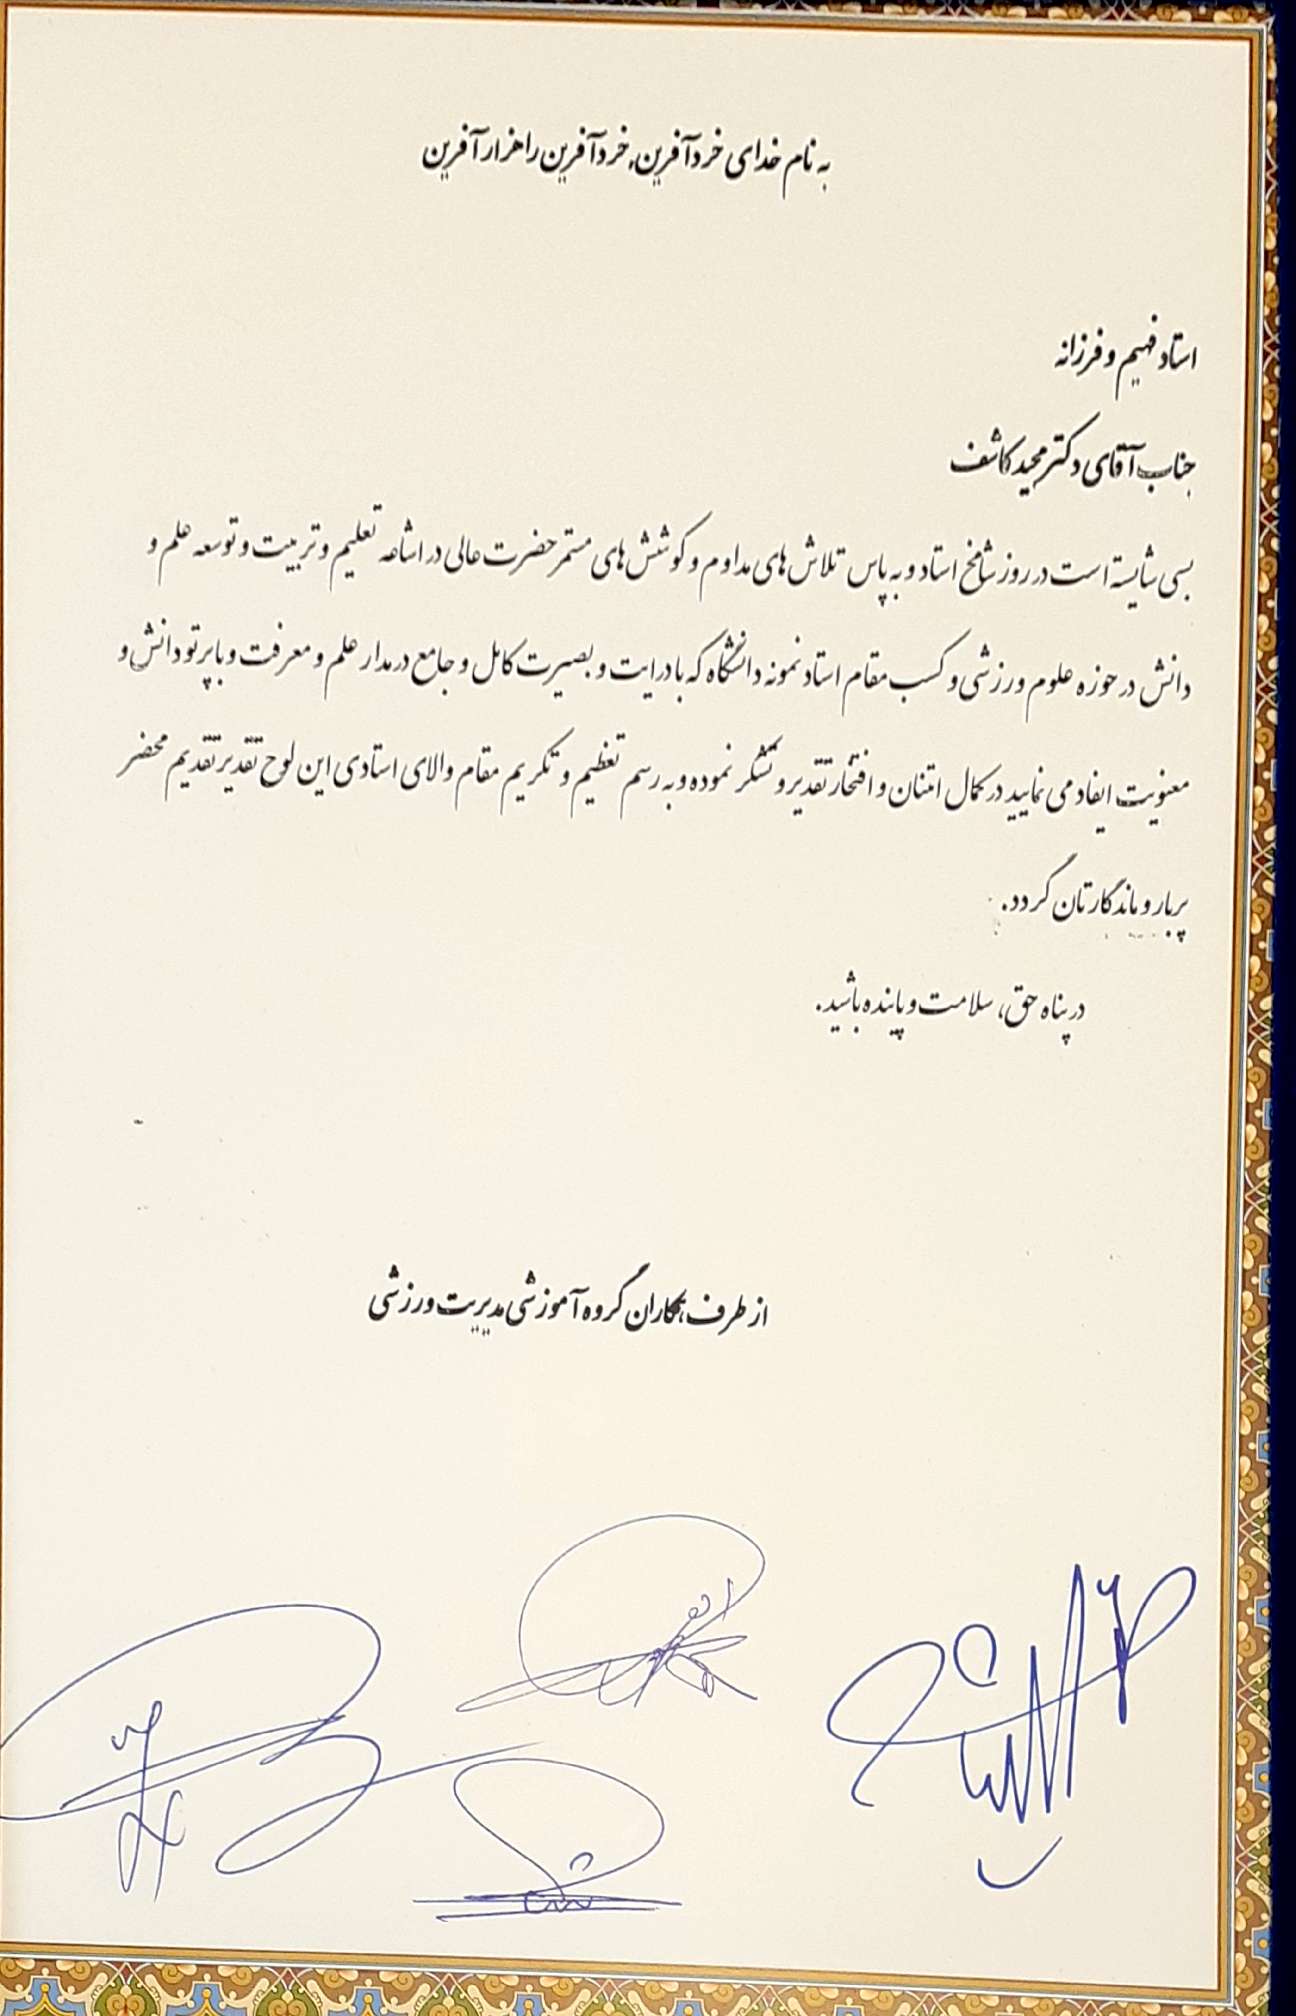 به نام خدای خردآفرین، خردآفرین را هزار آفرین
استاد فهیم و فرزانه
جناب آقای دکتر مجید کاشف
بسی شایسته است در روز شامخ استاد و به پاس تلاش های مداوم و کوشش های مستمر حضرت عالی در اشاعه تعلیم و تربیت و توسعه علم و
دانش در حوزه علوم ورزشی و کسب مقام استاد نمونه دانشگاه که با درایت و بصیرت کامل و جامع در مدار علم و معرفت و با پرتو دانش و
معنویت ایفاد می نمایید در کمال امتنان و افتخار تقدیر و تشکر نموده و به رسم تعظیم و تکریم مقام والای استادی این لوح تقدیر تقدیم محضر
پربار و ماندگارتان گردد.
در پناه حق، سلامت و پاینده باشید.
از طرف همکاران گروه آموزشی مدیریت ورزشی